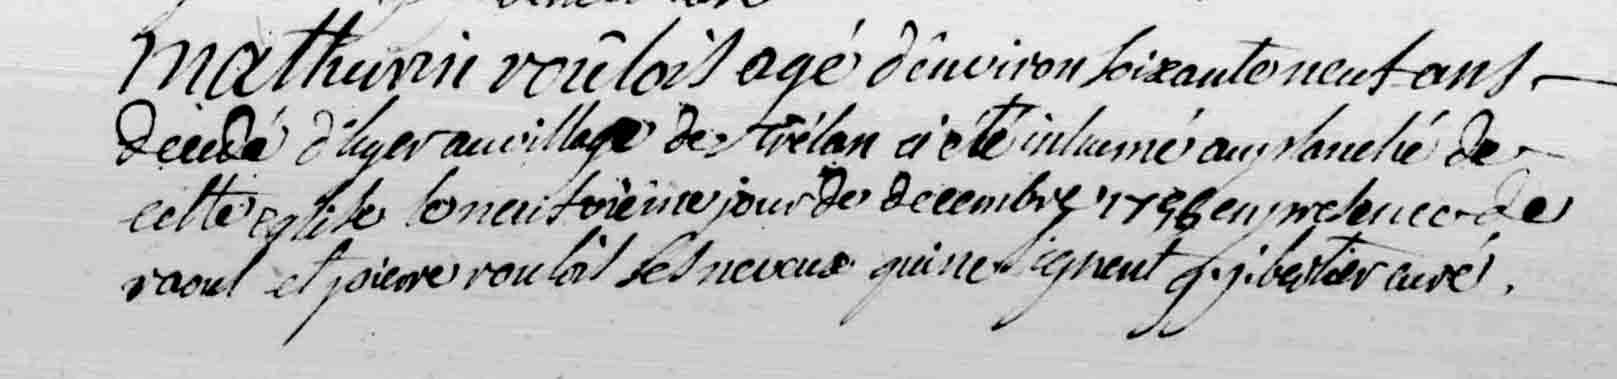 mathurin roûlois agé d'environ soixante neuf ans
décédé d'hyer au village de trélan a été inhumé au planché de
cette eglise le neufvième jour de decembre 1756 en presence de
raoul et pierre roulois ses neveux qui ne signent g. j. bertier curé.